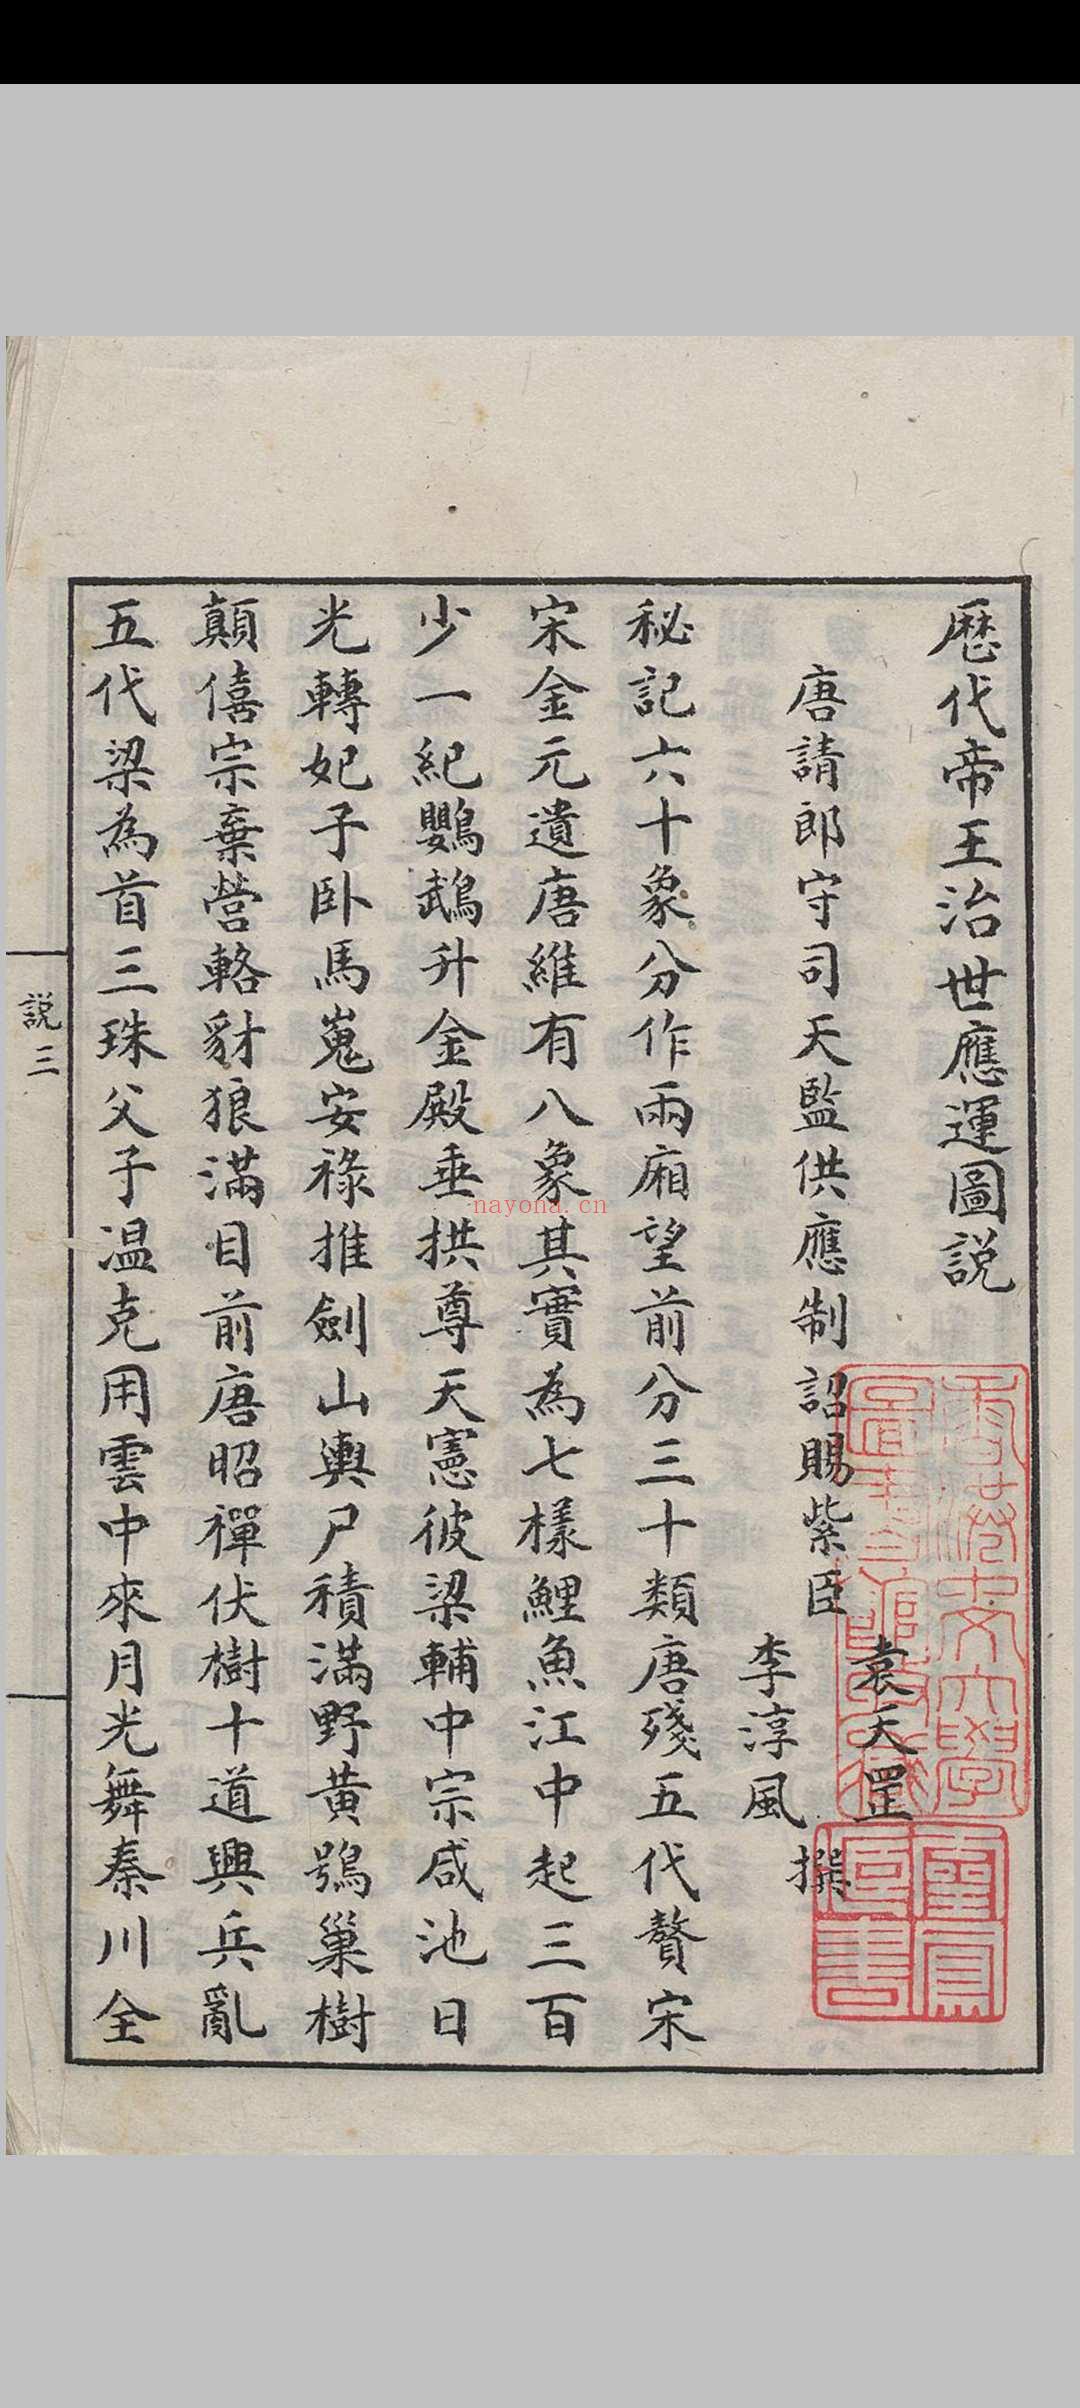 歷代帝王治世應運圖説
唐請郎守司天監供應制詔賜紫臣
袁天罡
李淳風
撰
秘記六十象分作兩廂望前分三十類唐殘五代贅宋
宋金元遺唐維有八象其實為七様鯉魚江中起三百
少一紀鸚鵡升金殿垂拱尊天憲彼梁輔中宗咸池日
光轉妃子卧馬嵬安祿推劍山輿尸積滿野黄鴞巢樹
顛僖宗棄營輅豺狼滿目前唐昭禪伏樹十道興兵亂
五代梁為首三珠父子温克用雲中來月光舞秦川全
説三
香港中文大學
圖書館藏
nayona.cn